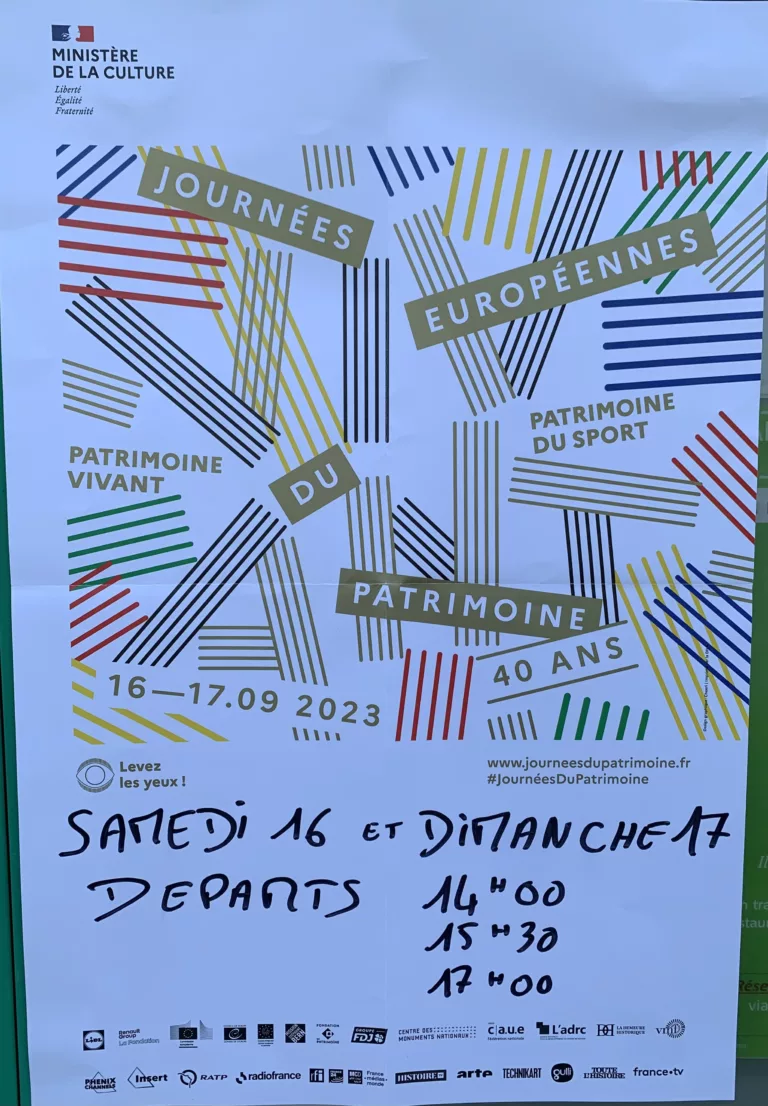 MINISTÈRE
DE LA CULTURE
Liberté
Égalité
Fraternité
JOURNÉES
EUROPÉENNES
PATRIMOINE
DU SPORT
PATRIMOINE
VIVANT
DU
PATRIMOINE
40 ANS
16—17.09 2023
Levez
les yeux !
www.journeesdupatrimoine.fr
#JournéesDuPatrimoine
SAMEDI 16 ET DIMANCHE 17
DEPARTS 14H00
15H30
17H00
LIDL
Renault
Group
La Fondation
FONDATION
PATRIMOINE
GROUPE
FDJ
CENTRE DES
MONUMENTS NATIONAUX
c|a.u.e
L'adrc
LA DEMEURE
HISTORIQUE
PHENIX
CHANNELS
Insert
RATP
radiofrance
rfi
France
médias
monde
HISTOIRE
arte
TECHNIKART
gulli
TOUTE
L'HISTOIRE
france•tv
via